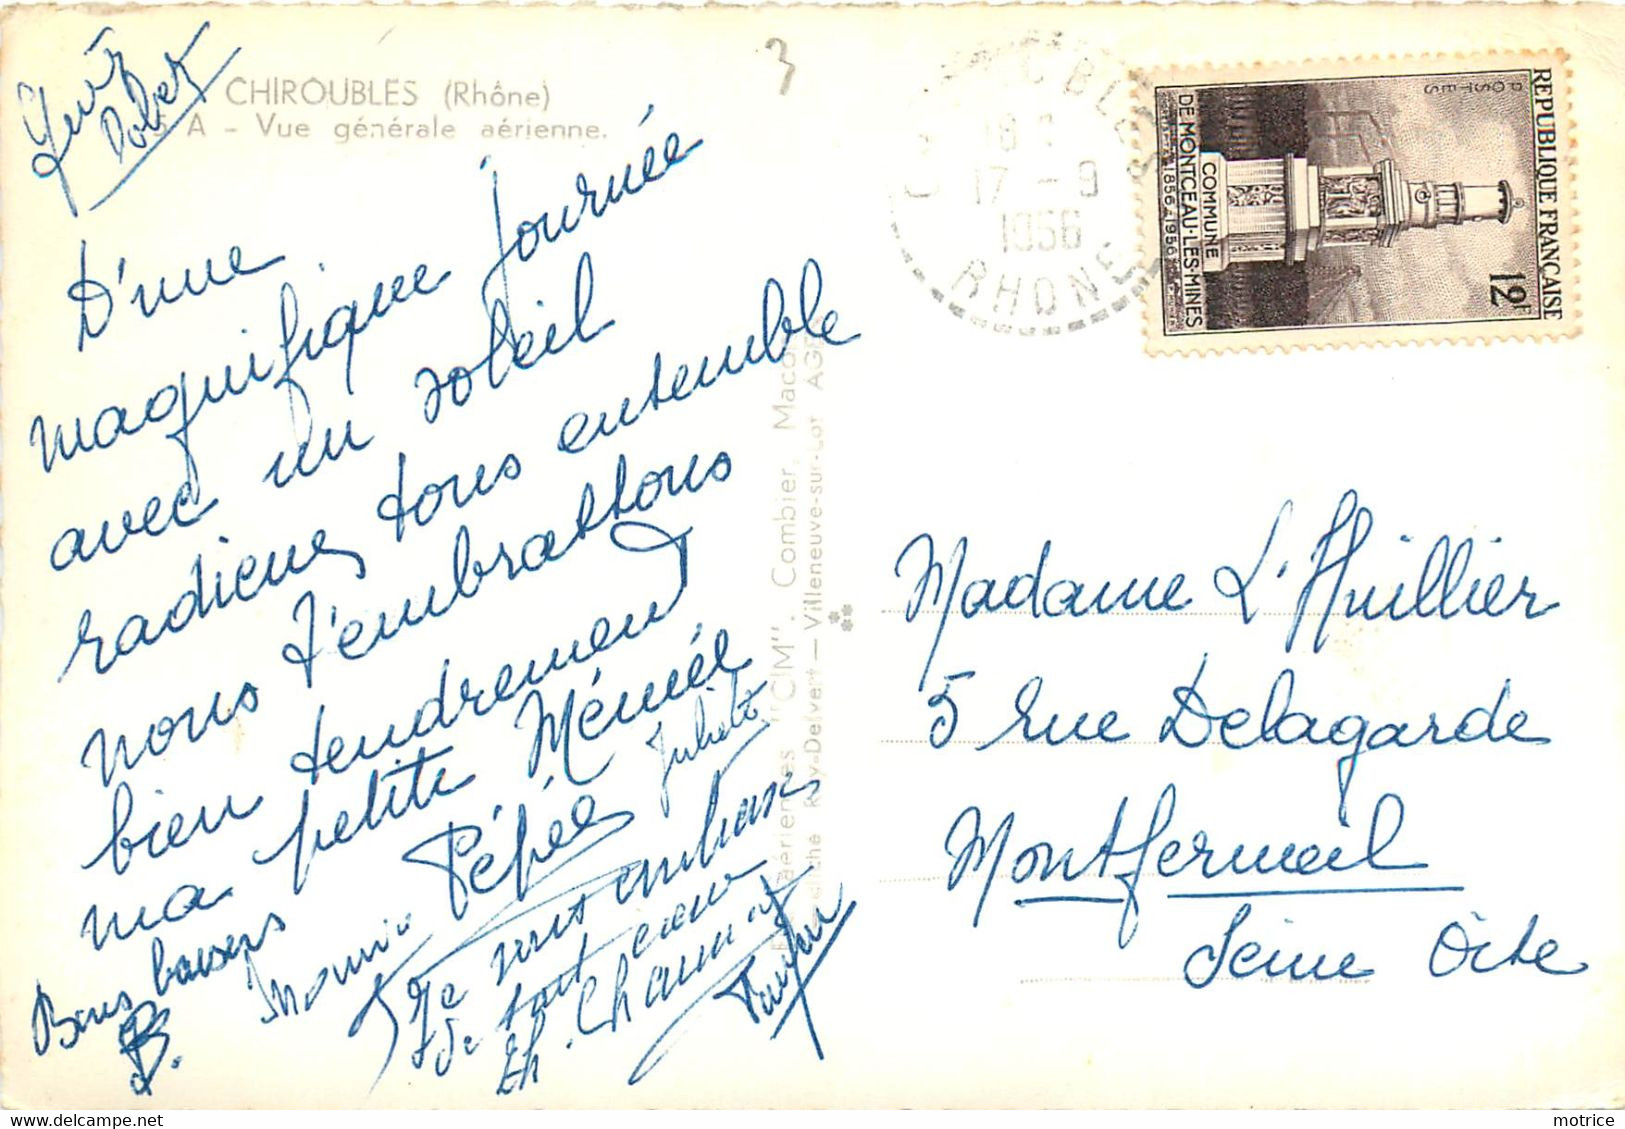 CHIROUBLES (Rhône)
A - Vue générale aérienne.
3
D'une
magnifique journée
avec un soleil
radieux, tous ensemble
nous t'embrassons
bien tendrement
ma petite Mémée
Pépée
Juliette
Bons baisers
B.
Mamie
Je vous embrasse
de tout cœur
18
17 - 9
1956
RHONE
REPUBLIQUE FRANÇAISE
POSTES
12F
COMMUNE
DE MONTCEAU-LES-MINES
1856-1956
aériennes "CIM". Combier, Macon
Ray-Delvert — Villeneuve-sur-Lot
Madame L'Huillier
5 rue Delagarde
Montfermeil
Seine Oise
motrice